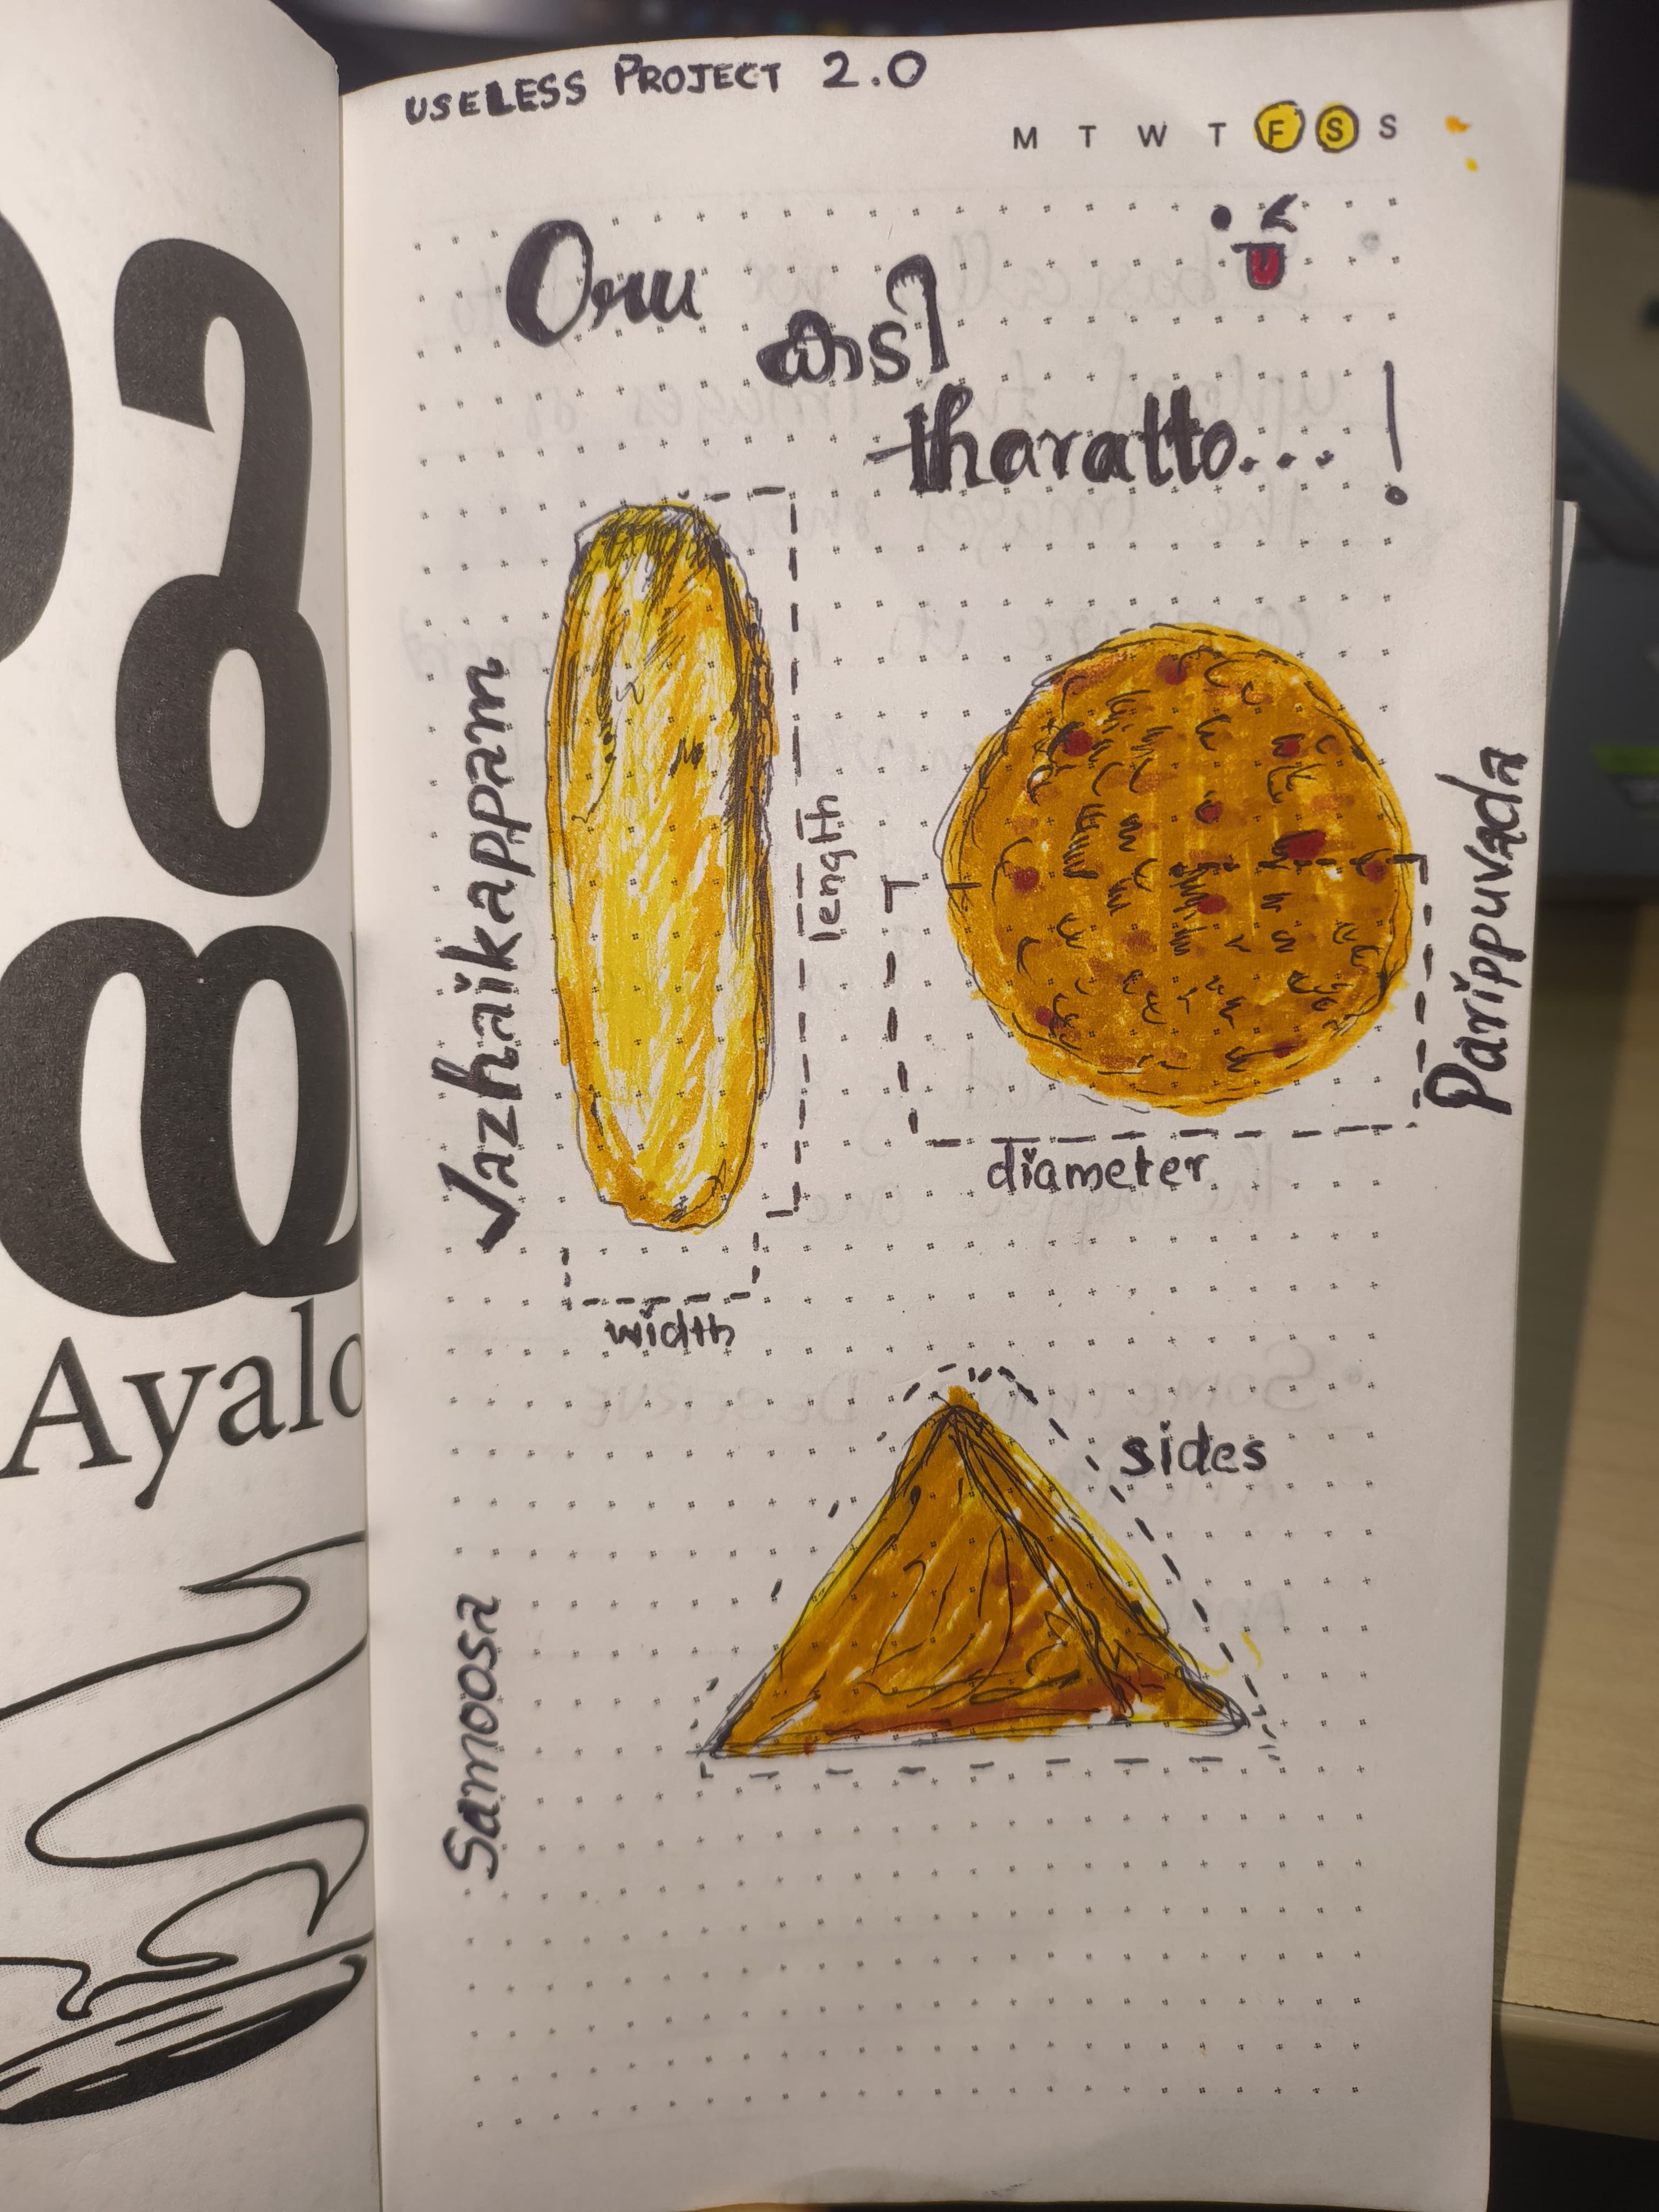 USELESS PROJECT 2.0
M T W T F S S
Oru
കടി
tharatto...!
Vazhaikappam
length
width
Parippuvada
diameter
Samoosa
sides